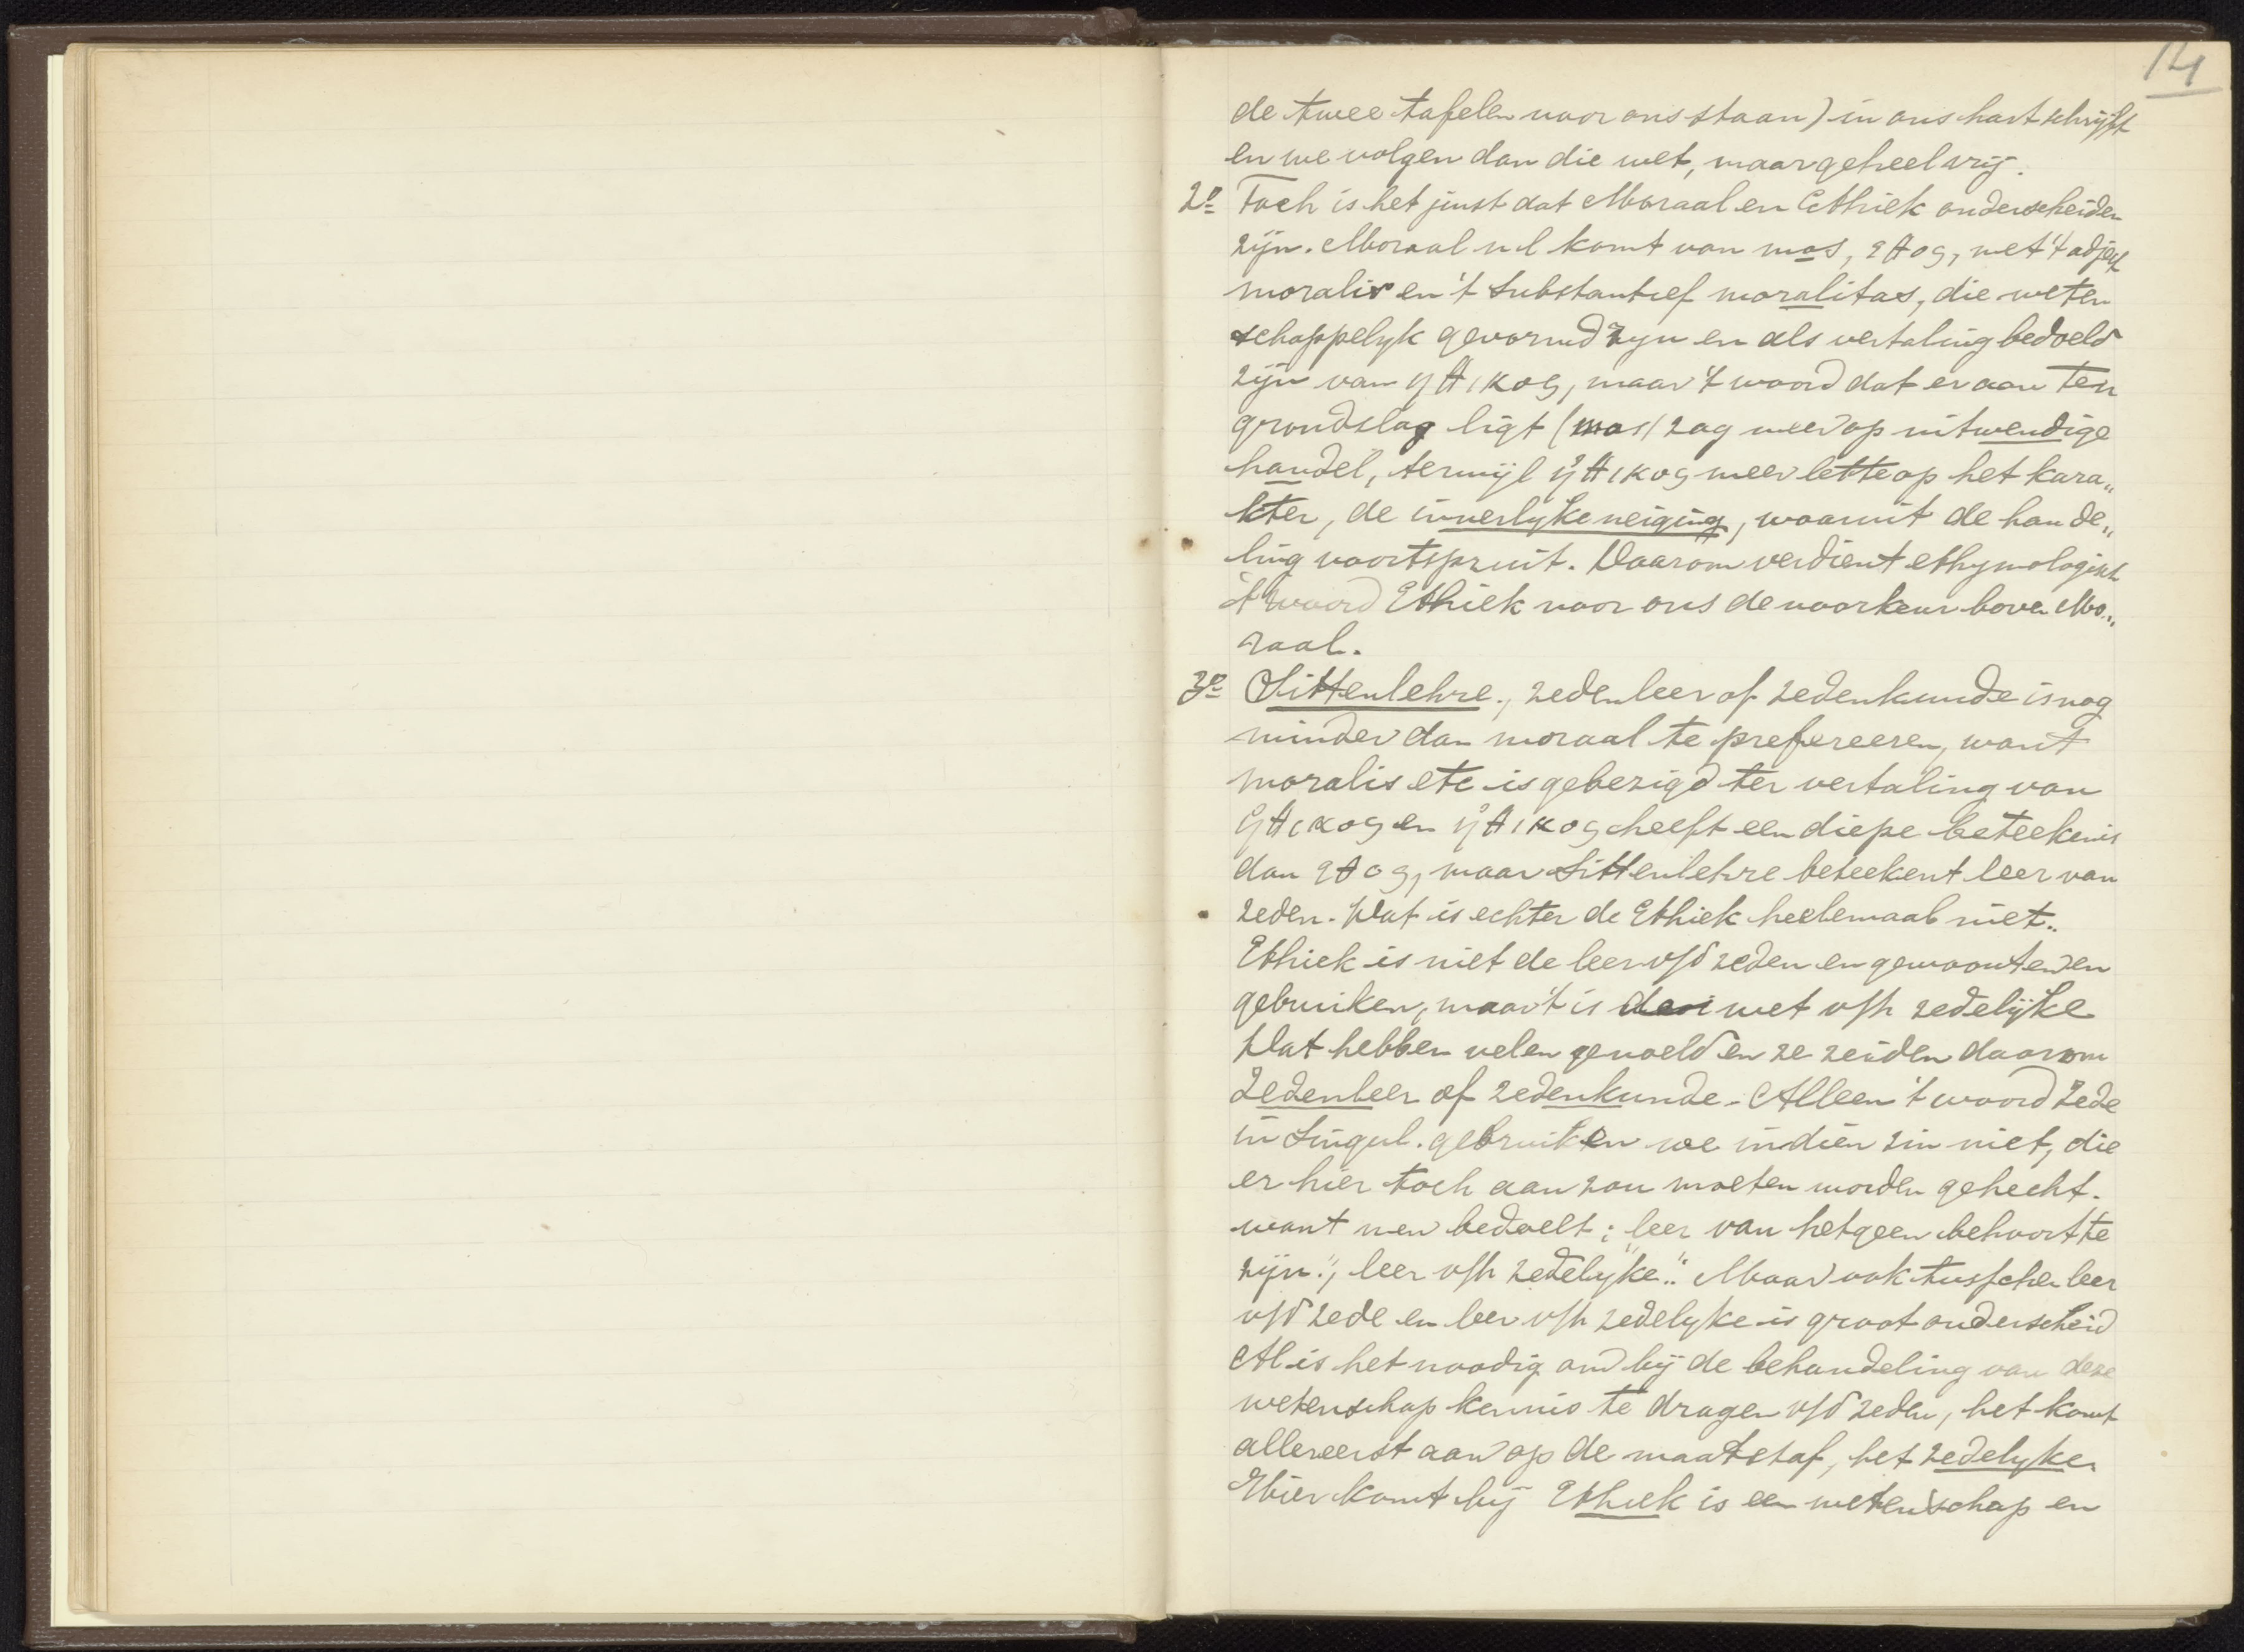 14
de twee tafelen voor ons staan) in ons hart schrijft
en we volgen dan die wet, maar geheel vrij.
2º Toch is het juist dat Moraal en Ethiek onderscheiden
zijn. Moraal nl komt van mos, εθος, met 't adject
moralis en 't substantief moralitas, die weten
schappelyk gevormd zyn en als vertaling bedoeld
zijn van ηθικος, maar 't woord dat er aan ten
grondslag ligt (mos) zag meer op uitwendige
handel, terwijl ἠθικος meer lette op het kara„
kter, de innerlyke neiging, waaruit de hande„
ling voortspruit. Daarom verdient ethymologisch
't woord Ethiek voor ons de voorkeur boven Mo„
raal.
3º Sittenlehre, zedenleer of zedenkunde is nog
minder dan moraal te prefereeren, want
moralis etc is gebezigd ter vertaling van
ἠθικος en ἠθικος heeft een diepe beteekenis
dan εθος, maar Sittenlehre beteekent leer van
zeden. Dat is echter de Ethiek heelemaal niet.
Ethiek is niet de leer v/d zeden en gewoonten en
gebruiken, maar 't is de wet v/h zedelijke
Dat hebben velen gevoeld en ze zeiden daarom
Zedenleer of zedenkunde. Alleen 't woord zede
in Singul. gebruiken we in dien zin niet, die
er hier toch aan zou moeten worden gehecht.
want men bedoelt: leer van hetgeen behoort te
zijn", leer v/h zedelyke". Maar ook tusschen leer
v/d zede en leer v/h zedelyke is groot onderscheid
Al is het noodig om bij de behandeling van deze
wetenschap kennis te dragen v/d zeden, het komt
allereerst aan op de maatstaf, het zedelyke.
Hier komt bij Ethiek is een wetenschap en